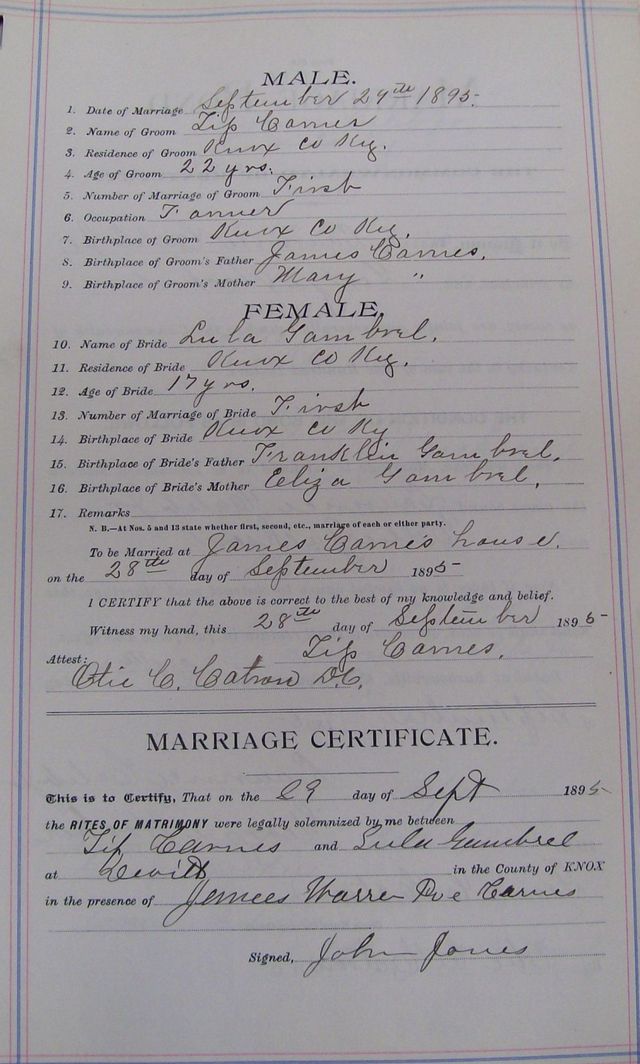 MALE.
1. Date of Marriage September 29th 1895
2. Name of Groom Tip Carnes
3. Residence of Groom Knox Co Ky.
4. Age of Groom 22 yrs.
5. Number of Marriage of Groom First
6. Occupation Farmer
7. Birthplace of Groom Knox Co Ky.
8. Birthplace of Groom's Father James Carnes.
9. Birthplace of Groom's Mother Mary "
FEMALE
10. Name of Bride Lula Gambrel.
11. Residence of Bride Knox Co Ky.
12. Age of Bride 17 yrs.
13. Number of Marriage of Bride First
14. Birthplace of Bride Knox Co Ky
15. Birthplace of Bride's Father Franklin Gambrel.
16. Birthplace of Bride's Mother Eliza Gambrel.
17. Remarks
N. B.—At Nos. 5 and 13 state whether first, second, etc., marriage of each or either party.
To be Married at James Carnes house.
on the 28th day of September 1895
I CERTIFY that the above is correct to the best of my knowledge and belief.
Witness my hand, this 28th day of September 1895
Tip Carnes.
Attest:
Otie C. Catron D.C.
MARRIAGE CERTIFICATE.
This is to Certify, That on the 29 day of Sept 1895
the RITES OF MATRIMONY were legally solemnized by me between
Tip Carnes and Lula Gambrel
at in the County of KNOX
in the presence of Warren Carnes
Signed, John Jones